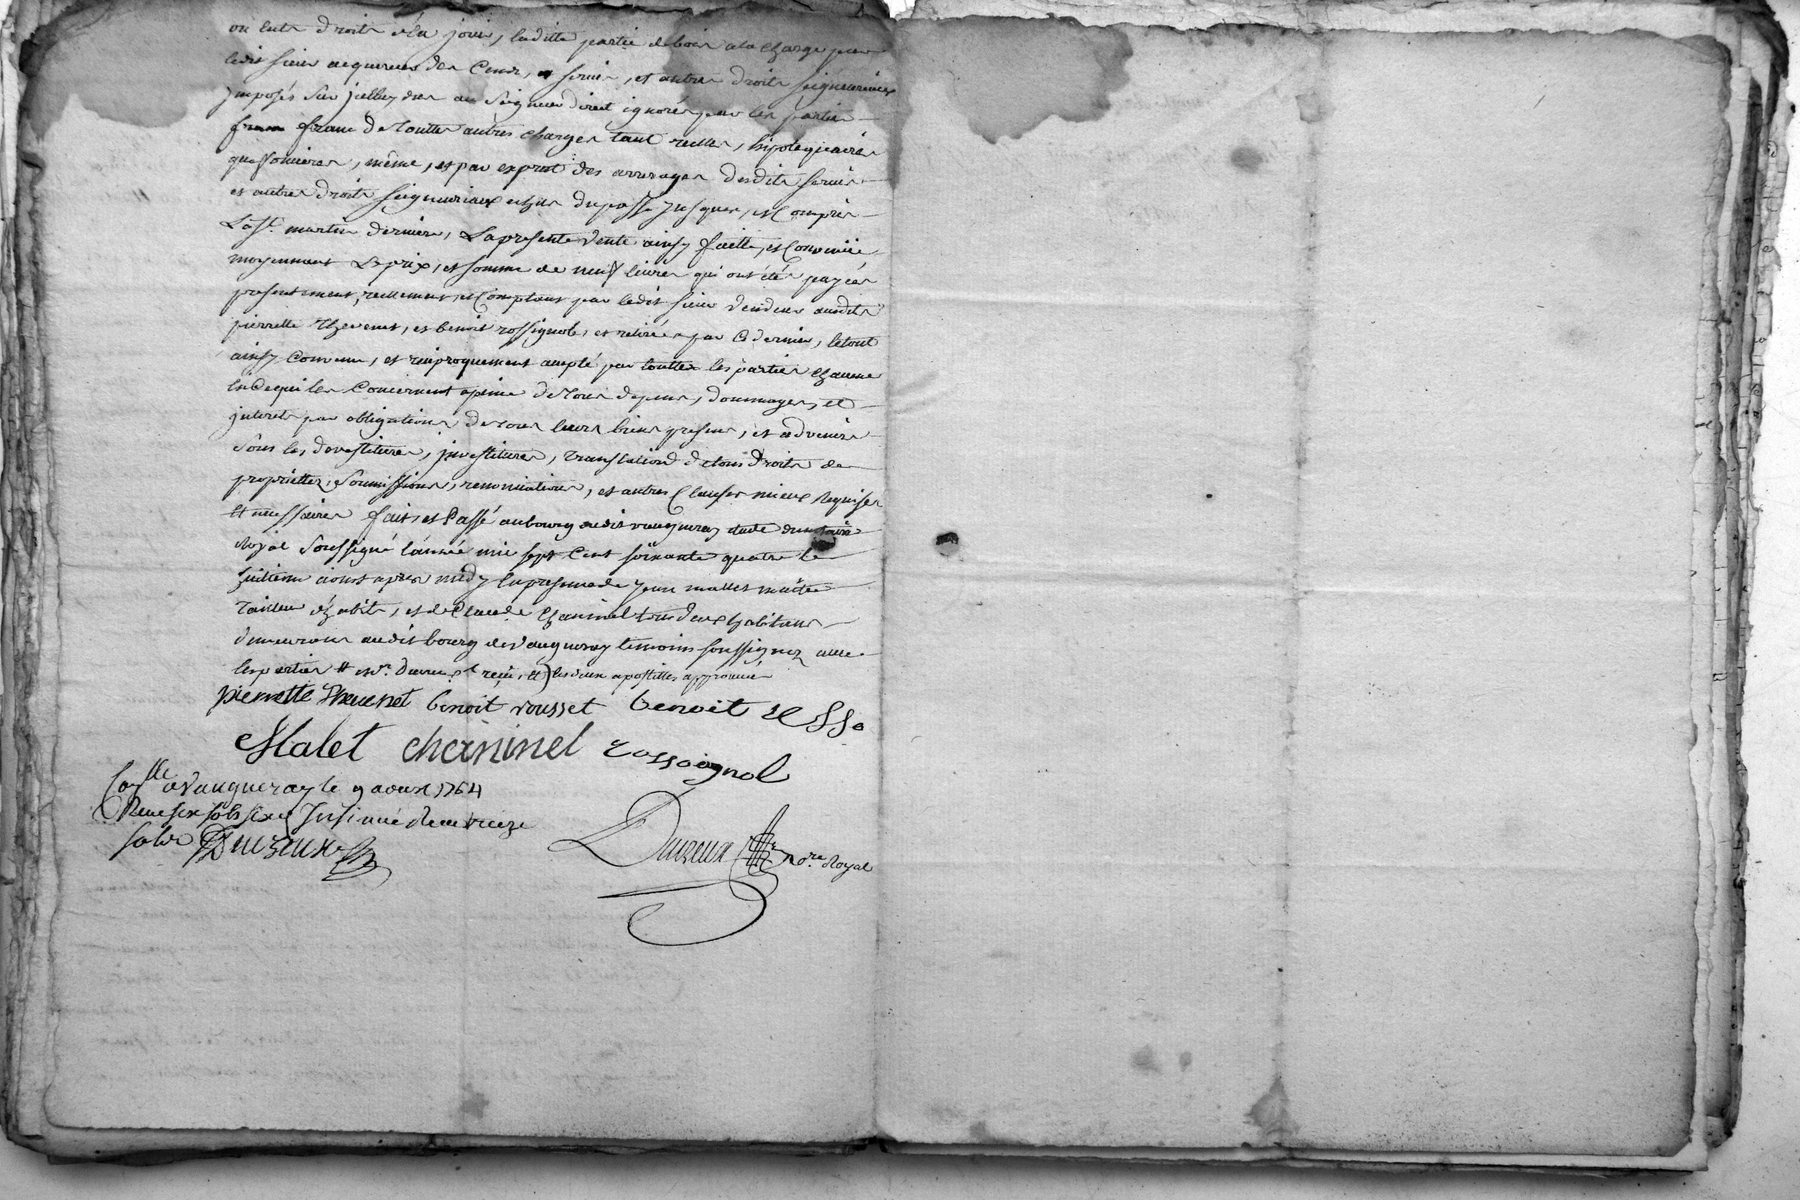 ou eut droit d'en jouir, laditte partie de bois a la charge par
ledit sieur acquereur des Cens, et servis, et autres droits seigneuriaux
jmposés sur jcelluy dus au Seigneur direct ignoré par les parties
franc de toutte autres charges tant reelles, hipotequaires
que foncieres, même, et par exprest des arrerages desdits servis
et autres droits seigneuriaux echus du passé jusques, et Compris
La St. martin derniere, La presente Vente ainsy faitte, et Convenüe
moyennant Le prix, et somme de neuf livres qui ont été payées
presentement, reellement, et Comptant par ledit sieur Vendeur auxdits
pierrette thevenet, et benoit rossignol, et retirée par Ce dernier, le tout
ainsy Convenu, et reciproquement accepté par touttes les parties chacune
en Ce qui les Concernent a peine de tous depens, dommages, et
jnterets par obligations de tous leurs biens presens, et advenir
Sous les devestitures, jnvestitures, translation de tous droits de
proprietter, soumissions, renonciations, et autres Clauses mieux Requises
Et necessaires fait, et Passé au bourg dudit vaugneray etude du notaire
Royal Soussigné l'année mil sept Cent soixante quatre le
huitieme aoust apres midy En presence de jean mallet maitre
Tailleur d'habits, et de Claude Chaninel tous deux habitans
demeurans audit bourg de Vaugneray temoins soussignez avec
les parties # les deux apostilles approuvé
pierrette thevenet benoit rousset benoit
Malet cheninel rossignol
Con.lle a Vaugneray le 9 aoust 1764
Reçu six sols six Insinué Reçu treize
sols Duzeux
Duzeux No.re Royal